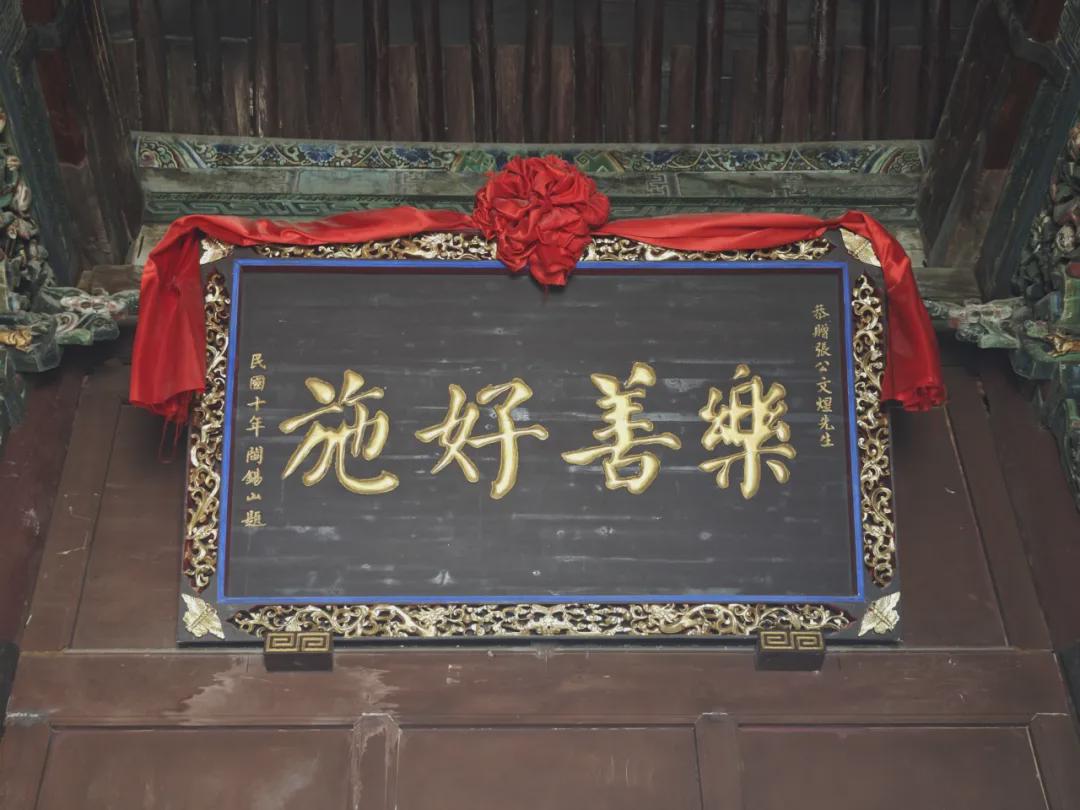 恭贈張公文煜先生
樂善好施
民國十年 閻錫山題